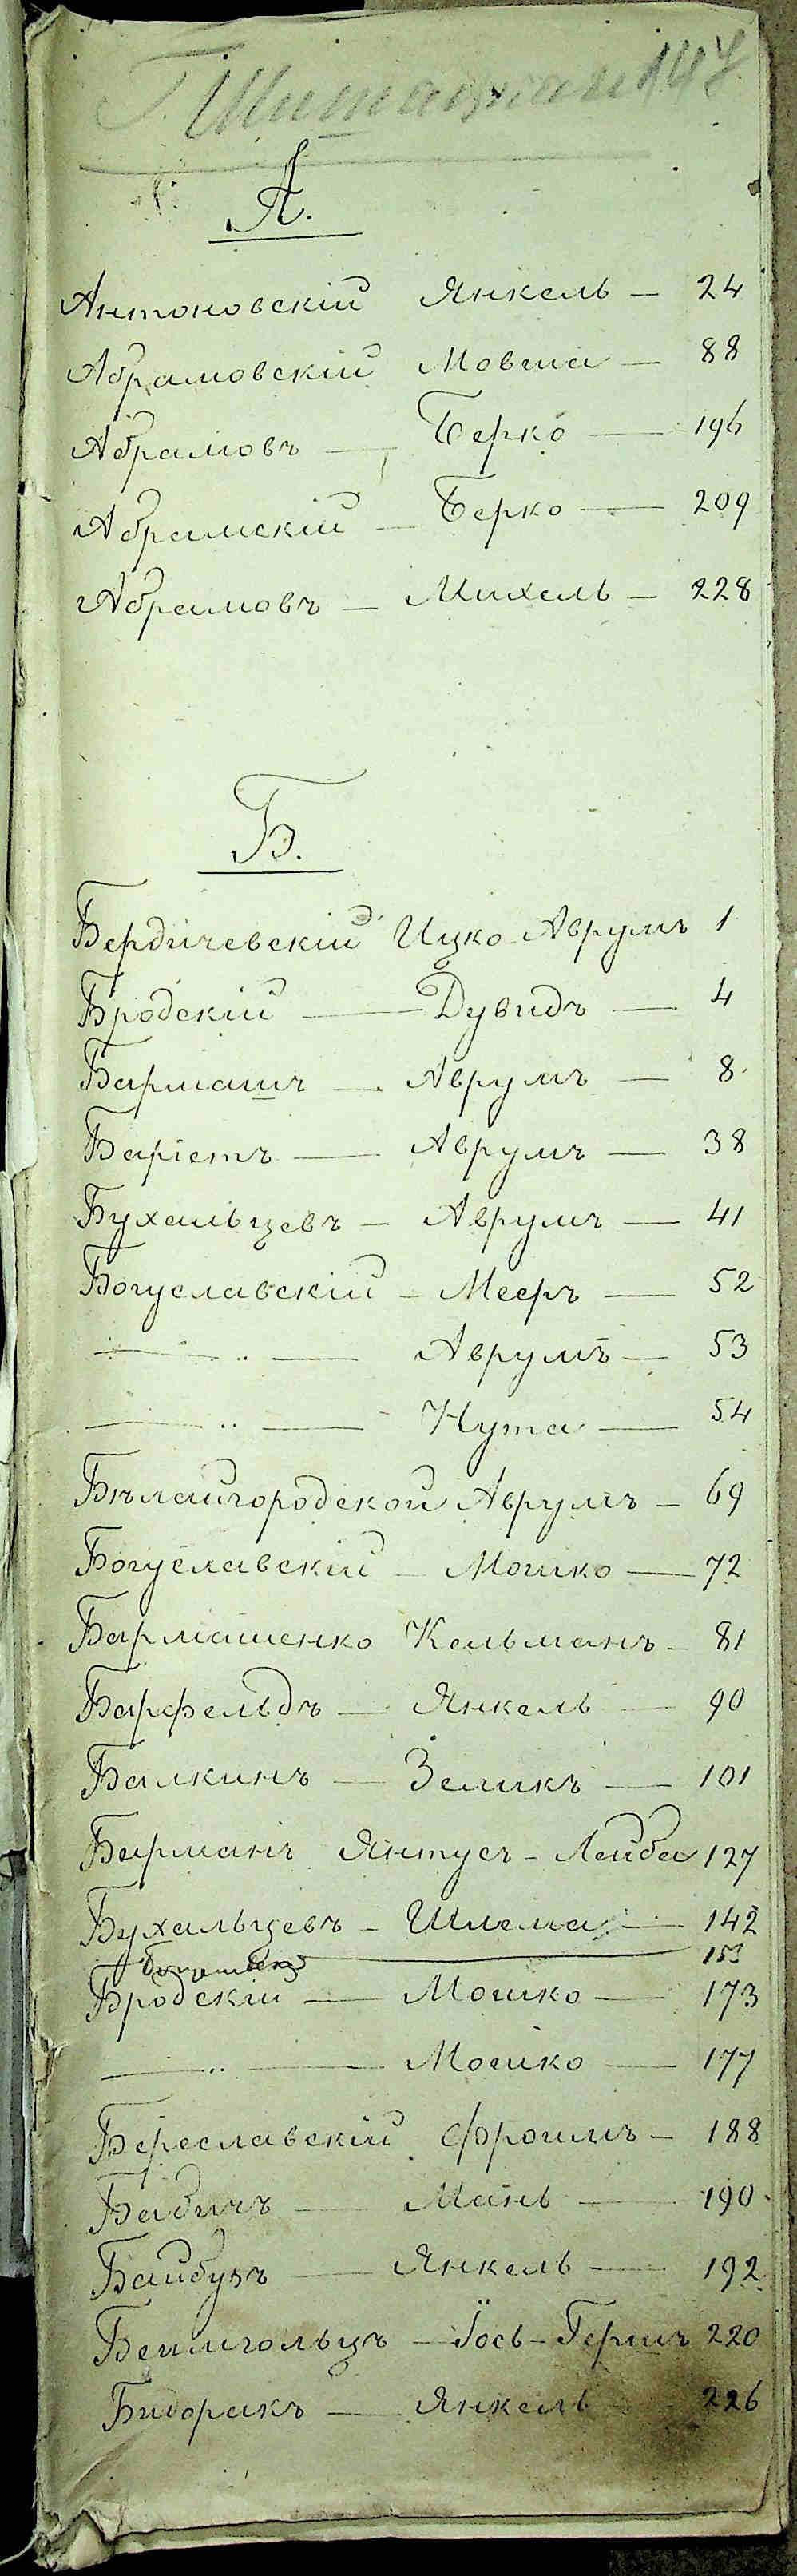 147
А.
Антоновскій Янкель — 24
Абрамовскій Мовша — 88
Абрамовъ — Берко — 196
Абрамскій — Берко — 209
Абрамовъ — Михель — 228
Б.
Бердичевскій Ицко-Аврумъ 1
Бродскій — Дувидъ — 4
Бармашъ — Аврумъ — 8
Баріетъ — Аврумъ — 38
Бухальцевъ — Аврумъ — 41
Богуславскій — Мееръ — 52
— „ — Аврумъ — 53
— „ — Нута — 54
Бѣлайгородской Аврумъ — 69
Богуславскій — Мошко — 72
Бармашенко Кельманъ — 81
Барфельдъ — Янкель — 90
Балкинъ — Зеликъ — 101
Берманъ Янтусъ-Лейба 127
Бухальцевъ — Шлема — 142
— 153
Бродскій — Мошко — 173
— „ — Мошко — 177
Береславскій Фроимъ — 188
Бабичъ — Мань — 190
Байбузъ — Янкель — 192
Беимгольцъ — Іось-Гершъ 220
Янкель — 226